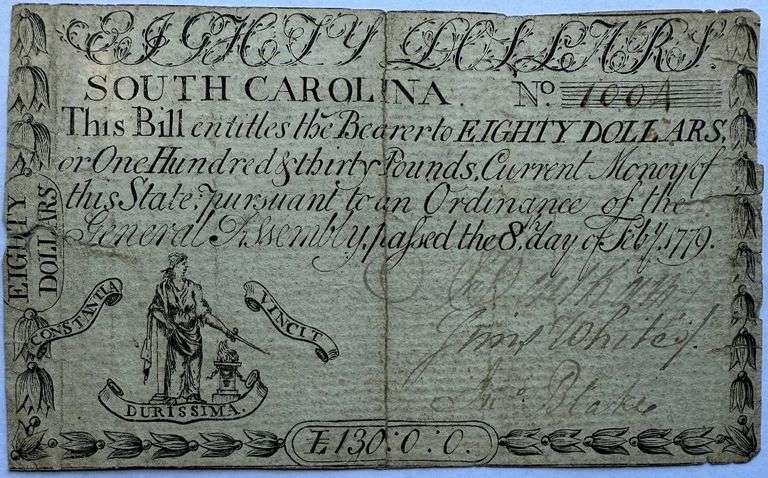 EIGHTY DOLLARS.
SOUTH CAROLINA. No. 1004
This Bill entitles the Bearer to EIGHTY DOLLARS,
or One Hundred & thirty Pounds, Current Money of
this State, pursuant to an Ordinance of the
General Assembly, passed the 8th day of Feby. 1779.
EIGHTY
DOLLARS
CONSTANTIA
VINCIT
DURISSIMA.
Blake
£130:0:0.